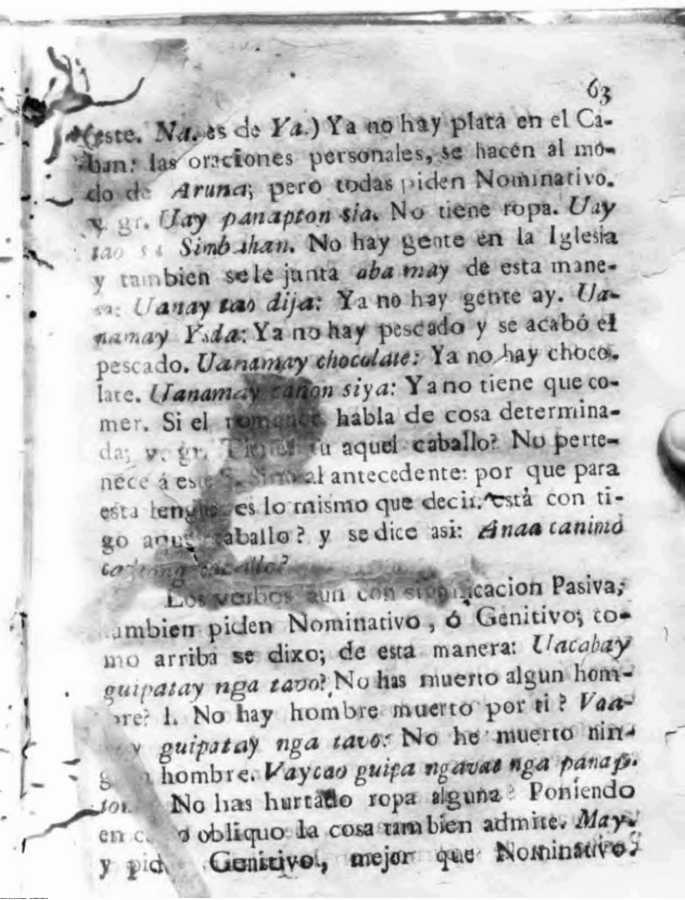 63
(este. Na. es de Ya.) Ya no hay plata en el Ca-
ban: las oraciones personales, se hacen al mo-
do de Aruna; pero todas piden Nominativo.
v. gr. Uay panapton sia. No tiene ropa. Uay
tao sa Simbahan. No hay gente en la Iglesia
y tambien se le junta aba may de esta mane-
ra: Uanay tao dija: Ya no hay gente ay. Ua-
namay Ysda: Ya no hay pescado y se acabó el
pescado. Uanamay chocolate: Ya no hay choco-
late. Uanamay siya: Ya no tiene que co-
mer. Si el romance habla de cosa determina-
da; v. gr. tu aquel caballo? No perte-
nece á este al antecedente: por que para
esta lengua es lo mismo que decir. está con ti-
go aquel caballo? y se dice asi: Anaa canimo
Los verbos aun con significacion Pasiva,
tambien piden Nominativo, ó Genitivo; co-
mo arriba se dixo; de esta manera: Uacabay
guipatay nga tavo? No has muerto algun hom-
bre? l. No hay hombre muerto por ti? Vaa-
guipatay nga tavo: No he muerto nin-
hombre. Vaycao guipa ngavat nga panap-
ton No has hurtado ropa alguna? Poniendo
en obliquo la cosa tambien admite. May.
y Genitivo, mejor que Nominativo.